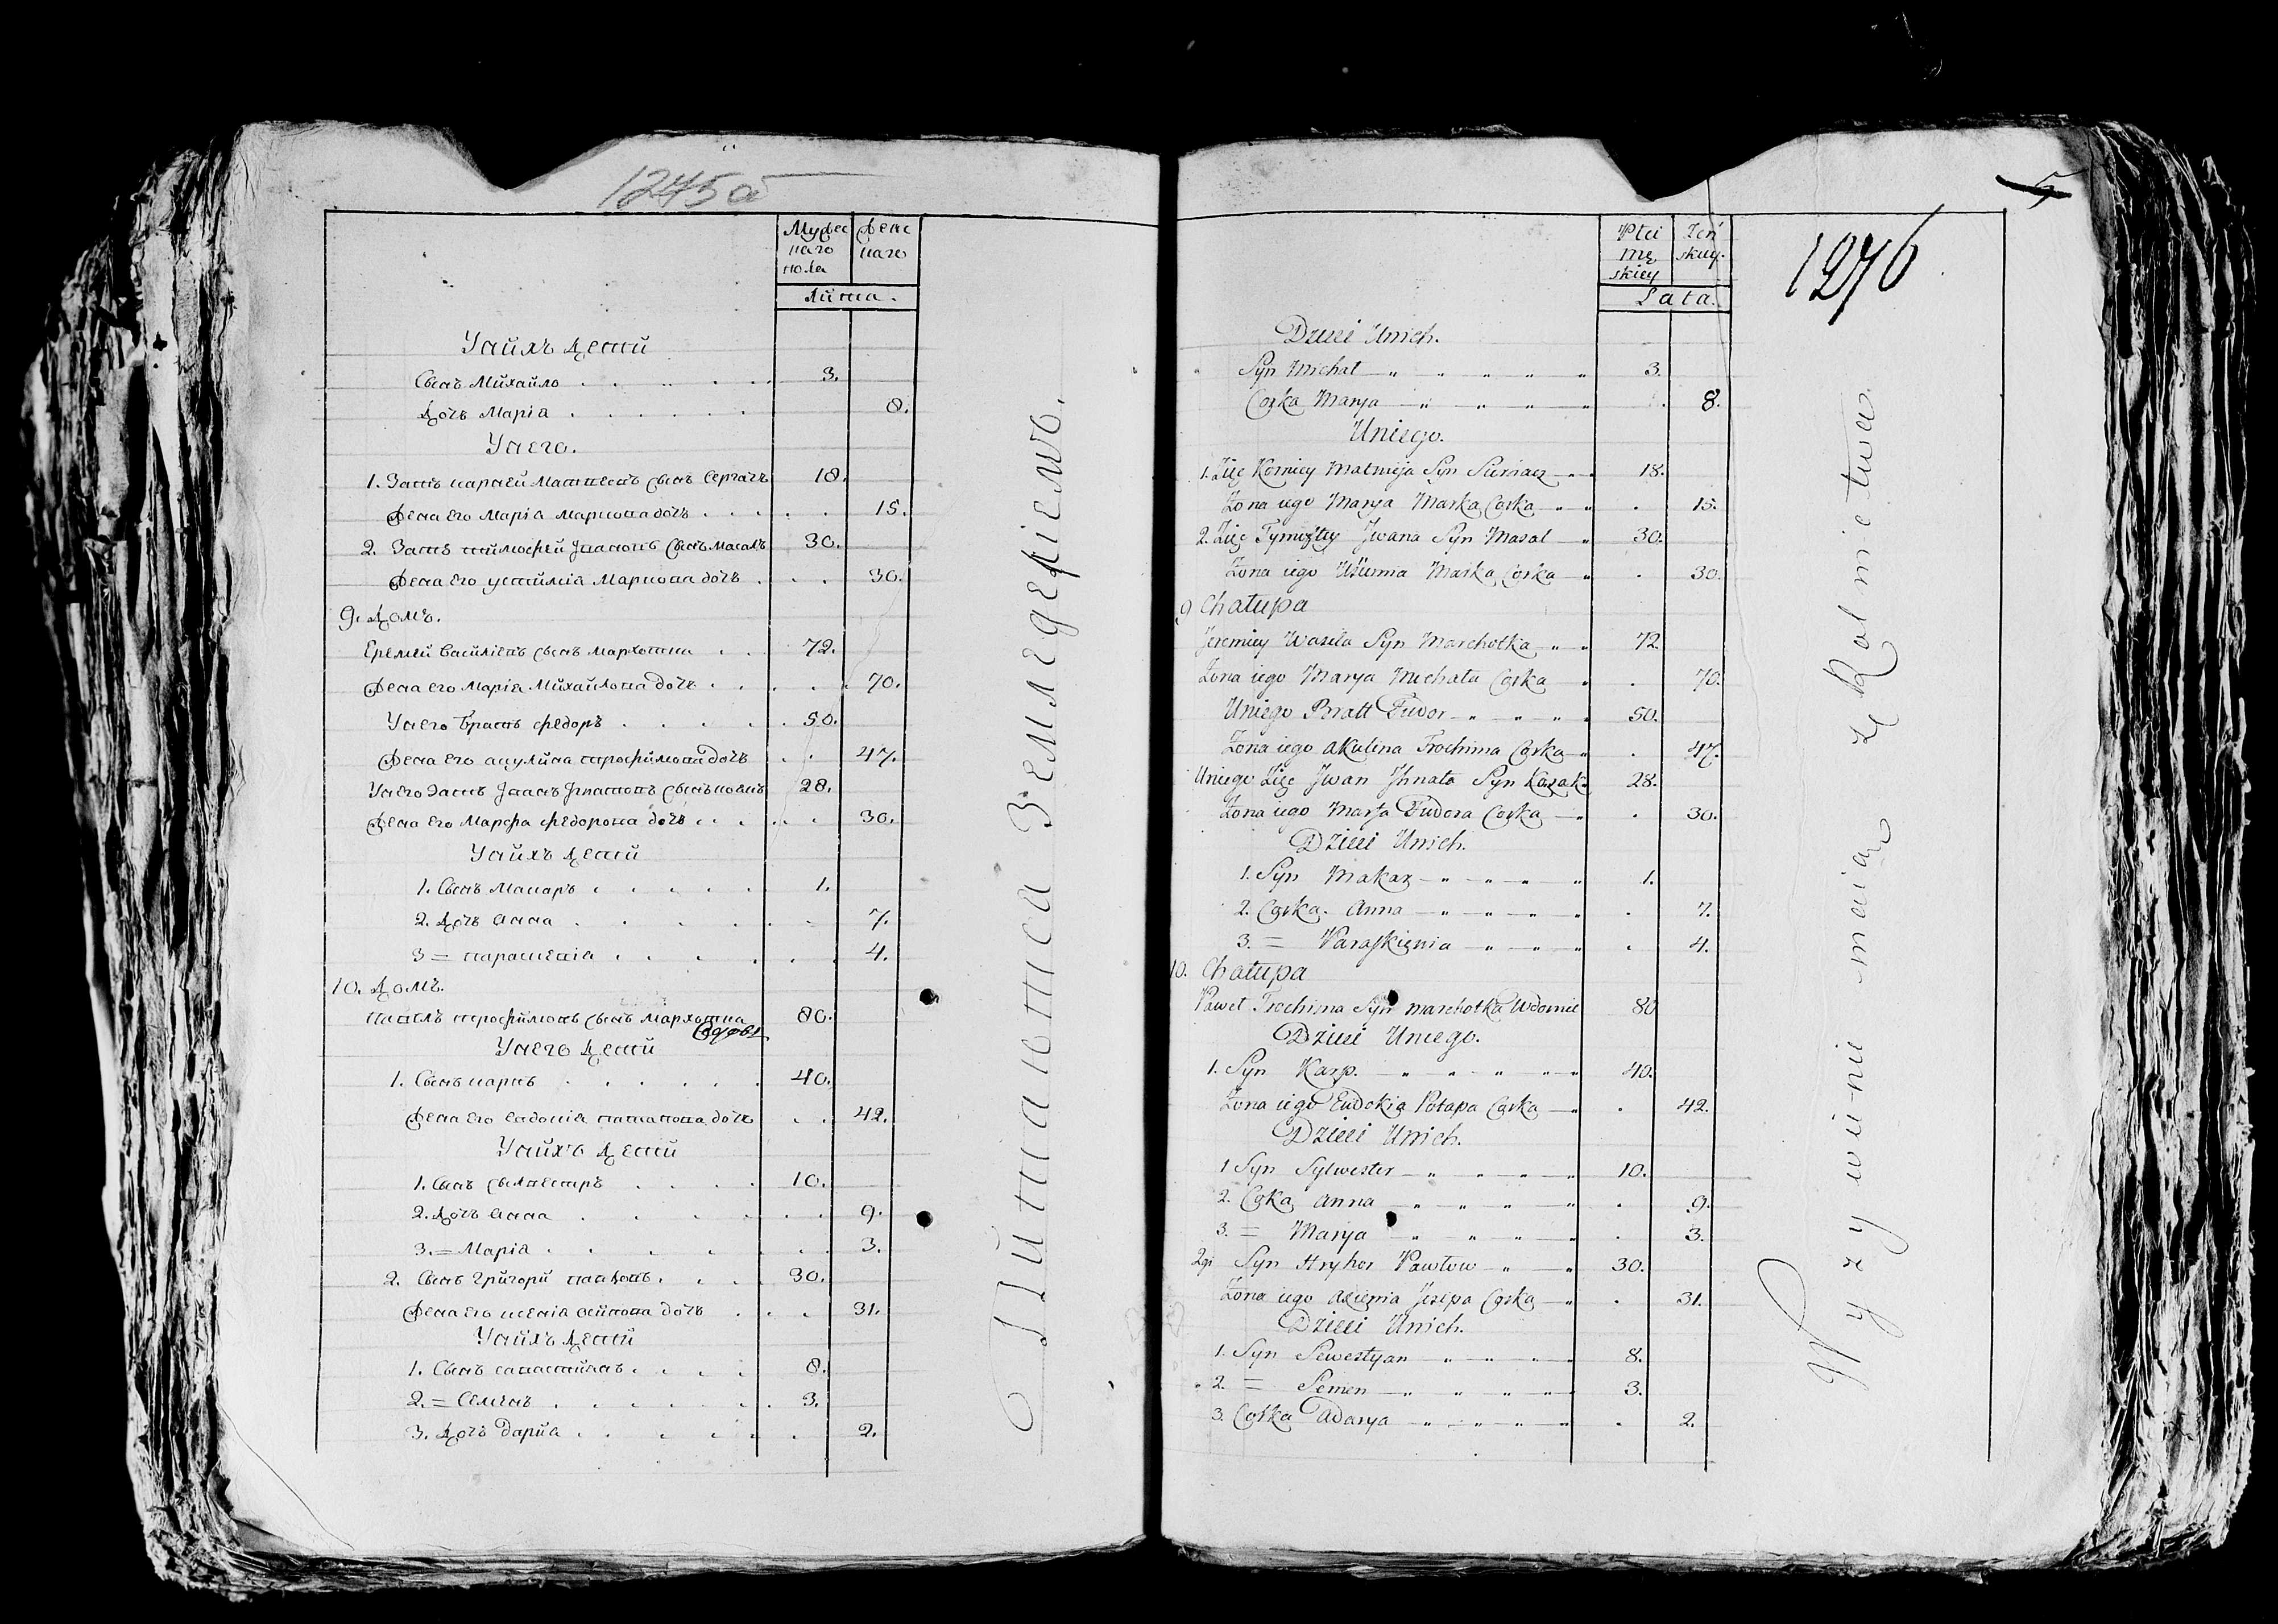 1245 а
Мужес
каго
пола
Женс
каго
Лѣта.
У нихъ дети
Сынъ Михайло 3.
Дочь Марiа 8.
У него.
1. Зать Карней Матвеевъ сынъ Сергачъ 18.
Жена его Марiа Маркова дочь 15.
2. Зать Тимофей Ивановъ сынъ Масалъ 30.
Жена его Устимiа Маркова дочь 30.
9. Домъ.
Еремей Васильевъ сынъ Мархотка 72.
Жена его Марiа Михайлова дочь 70.
У него братъ Федоръ 50.
Жена его Акулина Трофимова дочь 47.
У него зать Иванъ Игнатовъ сынъ 28.
Жена его Марфа Федорова дочь 30.
У нихъ дети
1. Сынъ Макаръ 1.
2. Дочь Анна 7.
3 = Параскевiа 4.
10. Домъ.
Павелъ Трофимовъ сынъ Мархотка 80.
Вдовъ
У него дети
1. Сынъ Карпъ 40.
Жена его Евдокiа Патапова дочь 42.
У нихъ дети
1. Сынъ Сылвестръ 10.
2. Дочь Анна 9.
3. = Марiа 3.
2. Сынъ Григори Павловъ 30.
Жена его Ксенiа Осипова дочь 31.
У нихъ дети
1. Сынъ Савастиянъ 8.
2. = Семенъ 3.
3. Дочь Дарйа 2.
Питаютса Земледелiемъ.
5
1276
Płci
mę
skiey
Żeń
skiey.
Lata.
Dzieci Unich.
Syn Michał 3.
Corka Marya 8.
Uniego.
1. Zięć Korniey Matwieja Syn 18.
Żona iego Marya Marka Corka 15.
2. Zięć Tymofiey Jwana Syn Masal 30.
Żona iego Uśtimia Marka Corka 30.
9 Chałupa
Jeremiey Wasila Syn Marchotka 72.
Żona iego Marya Michała Corka 70.
Uniego Bratt Fiedor 50.
Żona iego Akulina Trochima Corka 47.
Uniego Zięć Jwan Jhnata Syn Kozak 28.
Żona iego Marfa Fiudora Corka 30.
Dzieci Unich.
1. Syn Makar 1.
2. Corka Anna 7.
3. = Paraskiewia 4.
10. Chałupa
Paweł Trochima Syn Marchotka Wdowiec 80
Dzieci Uniego.
1. Syn Karp. 40.
Żona iego Eudokia Potapa Corka 42.
Dzieci Unich.
1 Syn Sylwester 10.
2. Corka Anna 9.
3. = Marya 3.
2gi Syn Hryhor Pawłow 30.
Żona iego Axienia Jozepa Corka 31.
Dzieci Unich.
1. Syn Sewestyan 8.
2. = Semen 3.
3. Corka Adarya 2.
Wyzywienie maią z Rolnictwa.